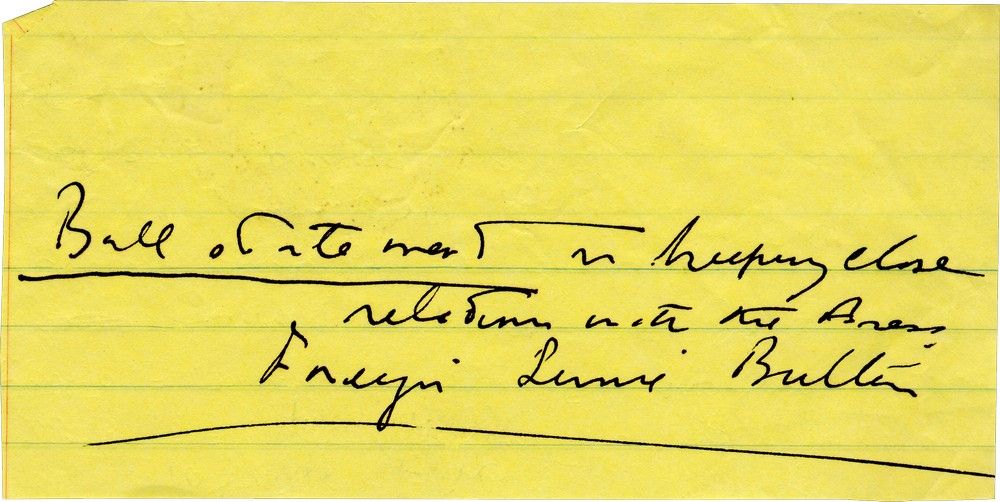 Ball statement on keeping close
relations with the Press
Foreign Service Bulletin